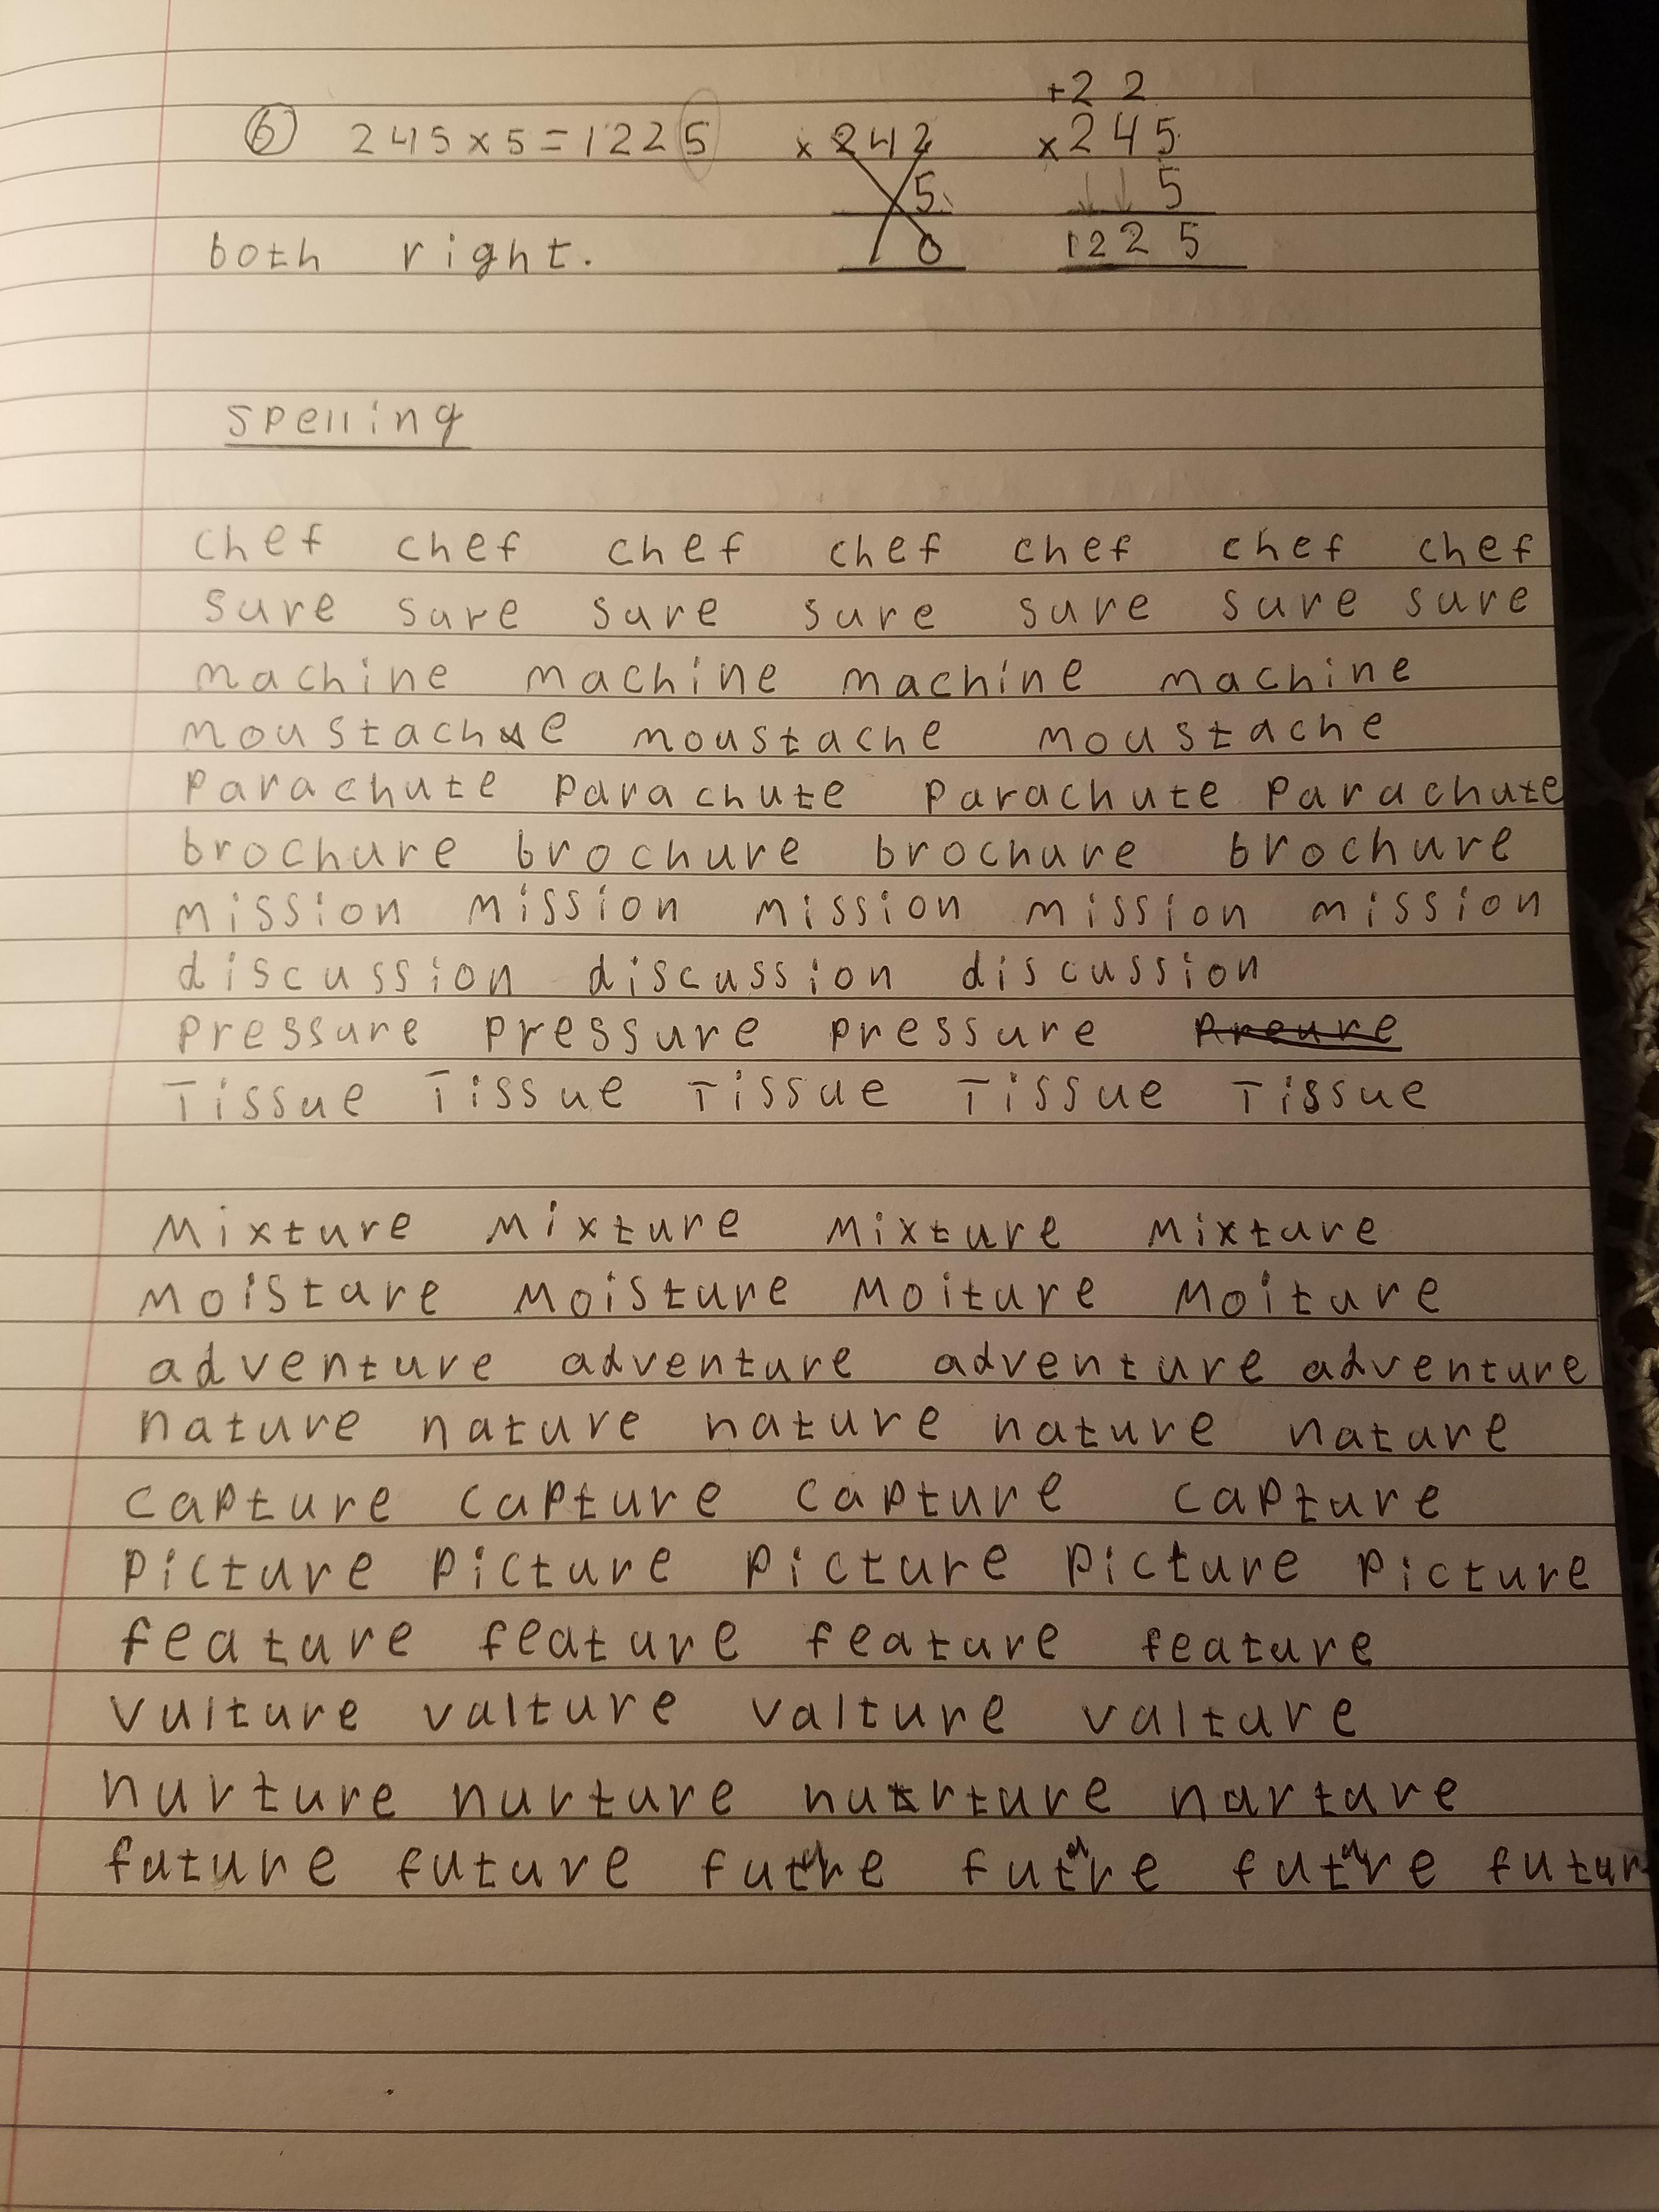 +2 2
6 245 x 5 = 1225 x 242 x 245
5 5
both right. 0 1225
Spelling
chef chef chef chef chef chef chef
sure sure sure sure sure sure sure
machine machine machine machine
moustache moustache moustache
parachute parachute parachute parachute
brochure brochure brochure brochure
mission mission mission mission mission
discussion discussion discussion
pressure pressure pressure preure
Tissue Tissue Tissue Tissue Tissue
Mixture Mixture Mixture Mixture
Moisture Moisture Moiture Moiture
adventure adventure adventure adventure
nature nature nature nature nature
capture capture capture capture
picture picture picture picture picture
feature feature feature feature
vulture vulture vulture vulture
nurture nurture nurture nurture
future future future future future futur